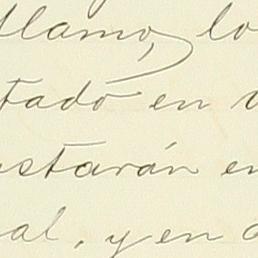 llamo, lo
tado en
starán en
al, y en